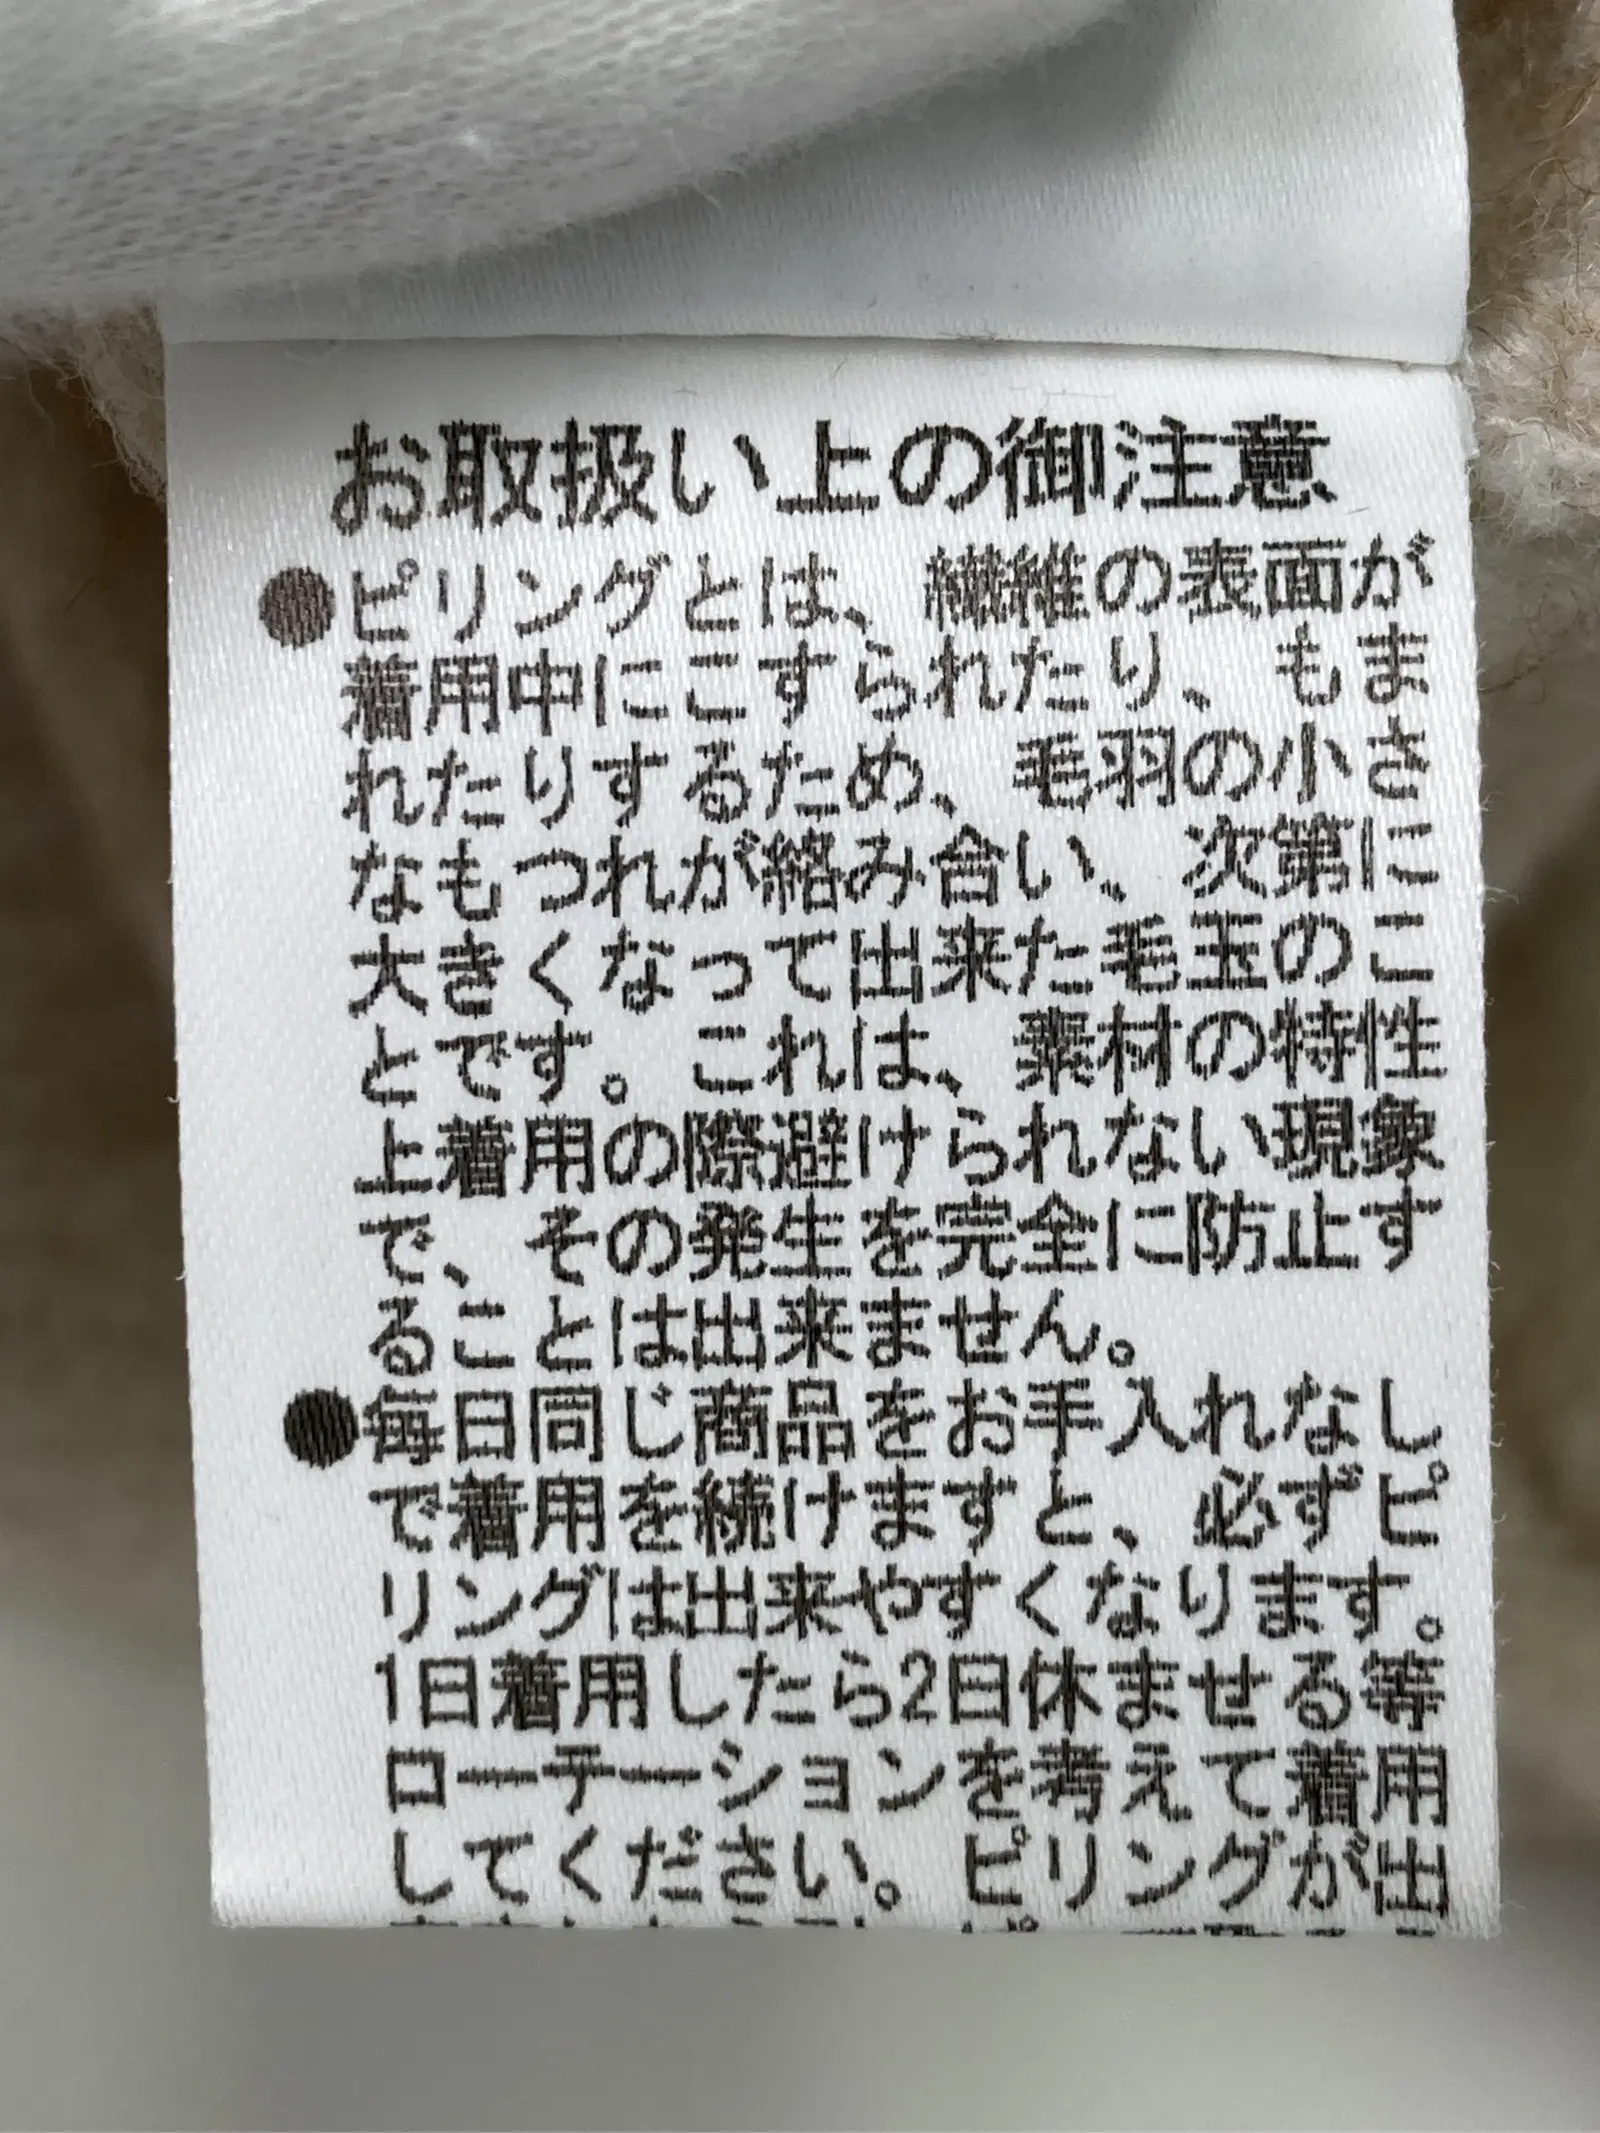 お取扱い上の御注意
●ピリングとは、繊維の表面が
着用中にこすられたり、もま
れたりするため、毛羽の小さ
なもつれが絡み合い、次第に
大きくなって出来た毛玉のこ
とです。これは、素材の特性
上着用の際避けられない現象
で、その発生を完全に防止す
ることは出来ません。
●毎日同じ商品をお手入れなし
で着用を続けますと、必ずピ
リングは出来やすくなります。
1日着用したら2日休ませる等
ローテーションを考えて着用
してください。ピリングが出